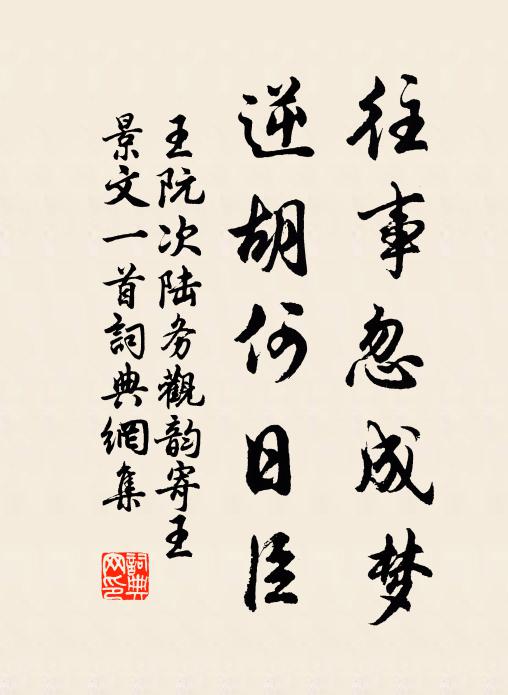 往事忽成梦
逆胡何日臣
王阮次陆务觀韵寄王
景文一首詞典網集
詞典
网印